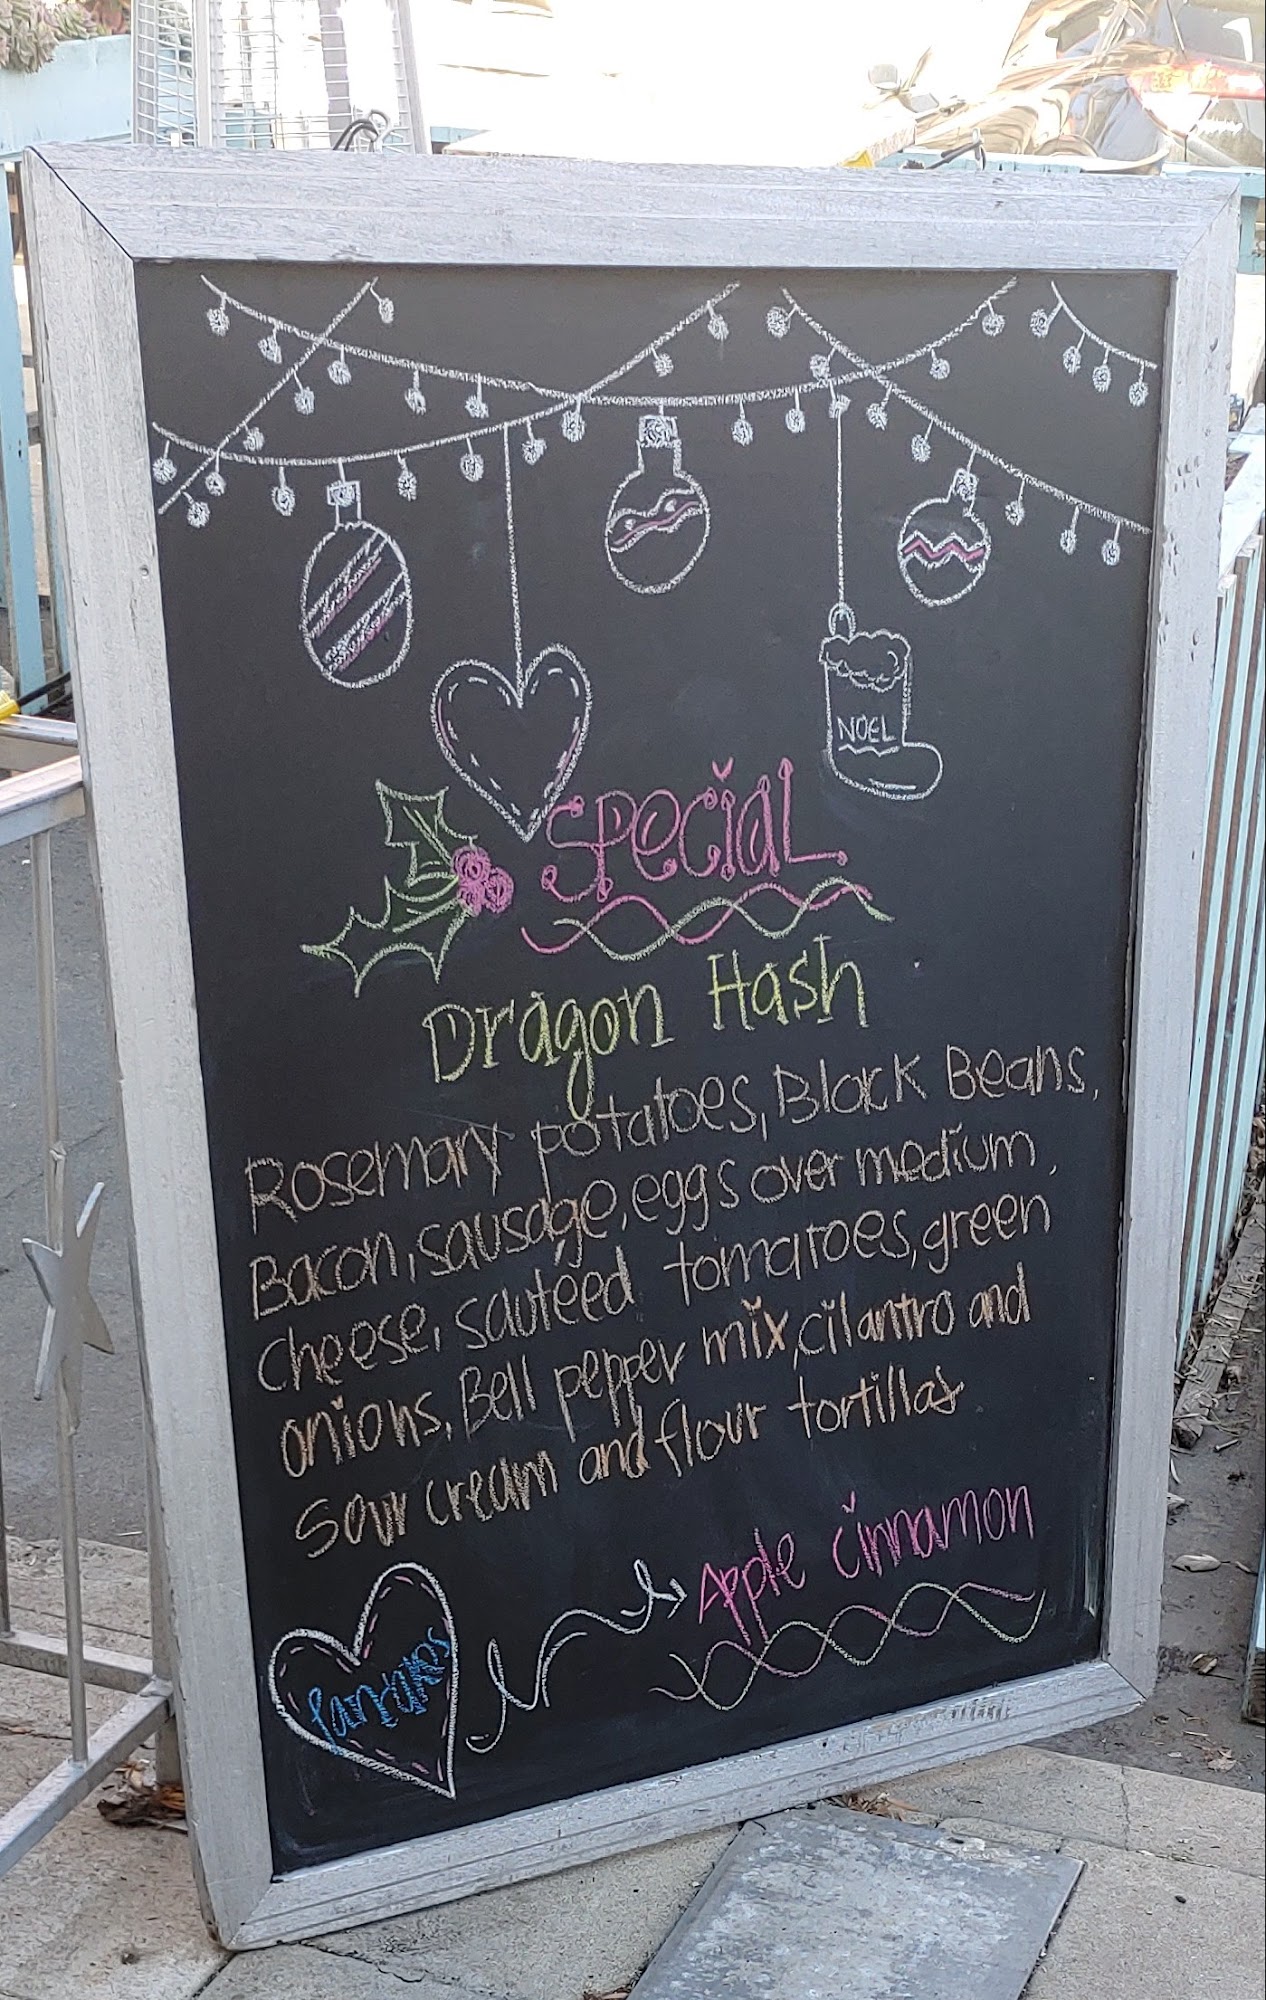 NOEL
Special
Dragon Hash
Rosemary potatoes, Black Beans,
Bacon, sausage, eggs over medium,
cheese, sautéed tomatoes, green
onions, Bell pepper mix, cilantro and
sour cream and flour tortillas
Apple cinnamon